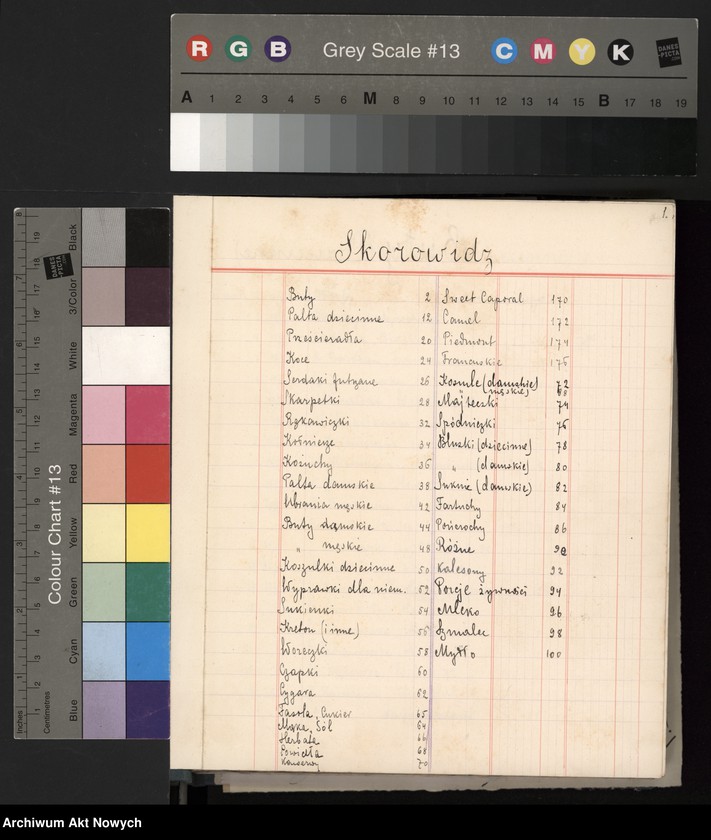 R G B Grey Scale #13 C M Y K
DANES PICTA .COM
A 1 2 3 4 5 6 M 8 9 10 11 12 13 14 15 B 17 18 19
Colour Chart #13
Black
3/Color
White
Magenta
Red
Yellow
Green
Cyan
Blue
Inches
Centimetres
1.
Skorowidz
Buty 2
Palta dziecinne 12
Prześcieradła 20
Koce 24
Serdaki futrzane 26
Skarpetki 28
Rękawiczki 32
Kołnierze 34
Kożuchy 36
Palta damskie 38
Ubrania męskie 42
Buty damskie 44
" męskie 48
Koszulki dziecinne 50
Wyprawki dla niem. 52
Sukienki 54
Kreton (i inne) 56
Woreczki 58
Czapki 60
Cygara 62
Fasola, Cukier 65
Mąka, Sól 64
Herbata 66
Powidła 68
Konserwy 70
Sweet Caporal 170
Camel 172
Piedmont 174
Francuskie 176
Koszule (damskie) 72
męskie)
Majteczki 74
Spódniczki 76
Bluzki (dziecinne) 78
" (damskie) 80
Suknie (damskie) 82
Fartuchy 84
Pończochy 86
Różne 90
Kalesony 92
Porcje żywności 94
Mleko 96
Szmalec 98
Mydło 100
Archiwum Akt Nowych